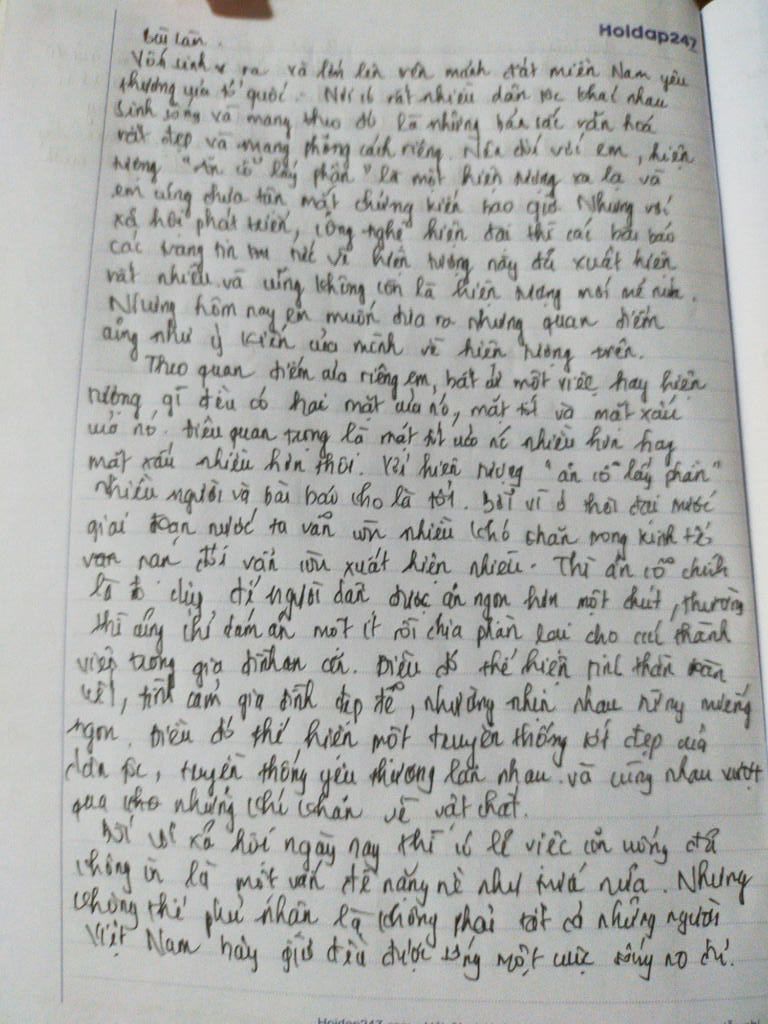 Holdap247
Bài làm.
Vốn sinh ra và lớn lên trên mảnh đất miền Nam yêu
thương của tổ quốc. Nơi có rất nhiều dân tộc khác nhau
sinh sống và mang theo đó là những bản sắc văn hoá
rất đẹp và mang phong cách riêng. Nên đối với em, hiện
tượng "ăn cỗ lấy phần" là một hiện tượng xa lạ và
em cũng chưa tận mắt chứng kiến bao giờ. Nhưng với
xã hội phát triển, công nghệ hiện đại thì các bài báo
các trang tin tức về hiện tượng này đã xuất hiện
rất nhiều và cũng không còn là hiện tượng mới mẻ nữa.
Nhưng hôm nay em muốn đưa ra những quan điểm
cũng như ý kiến của mình về hiện tượng trên.
Theo quan điểm của riêng em, bất cứ một việc hay hiện
tượng gì đều có hai mặt của nó, mặt tốt và mặt xấu
của nó. Điều quan trọng là mặt tốt của nó nhiều hơn hay
mặt xấu nhiều hơn thôi. Với hiện tượng "ăn cỗ lấy phần"
nhiều người và bài báo cho là tốt. Bởi vì ở thời đại trước
giai đoạn nước ta vẫn còn nhiều khó khăn trong kinh tế
vạn nạn đói vẫn còn xuất hiện nhiều. Thì ăn cỗ chính
là dịp để người dân được ăn ngon hơn một chút, thường
thì cũng chỉ dám ăn một ít rồi chia phần lại cho các thành
viên trong gia đình ăn cả. Điều đó thể hiện tinh thần đoàn
kết, tình cảm gia đình đẹp đẽ, nhường nhịn nhau từng miếng
ngon. Điều đó thể hiện một truyền thống tốt đẹp của
dân tộc, truyền thống yêu thương lẫn nhau và cùng nhau vượt
qua cho những khó khăn về vật chất.
Đối với xã hội ngày nay thì có lẽ việc ăn uống đã
không còn là một vấn đề nặng nề như trước nữa. Nhưng
không thể phủ nhận là không phải tất cả những người
Việt Nam bây giờ đều được sống một cuộc sống no đủ.